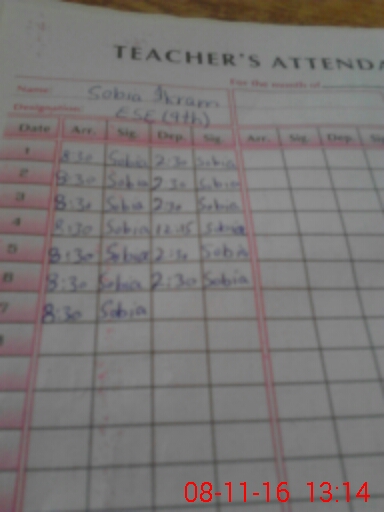 TEACHER'S ATTENDA
For the month of
Name: Sobia Ikram
Designation: ESE (9th)
Date Arr. Sig. Dep. Sig. Arr. Sig. Dep. Sig
1 8:30 Sobia 2:30 Sobia
2 8:30 Sobia 2:30 Sobia
3 8:30 Sobia 2:30 Sobia
4 8:30 Sobia 12:15 Sobia
5 8:30 Sobia 2:30 Sobia
6 8:30 Sobia 2:30 Sobia
7 8:30 Sobia
8
08-11-16 13:14